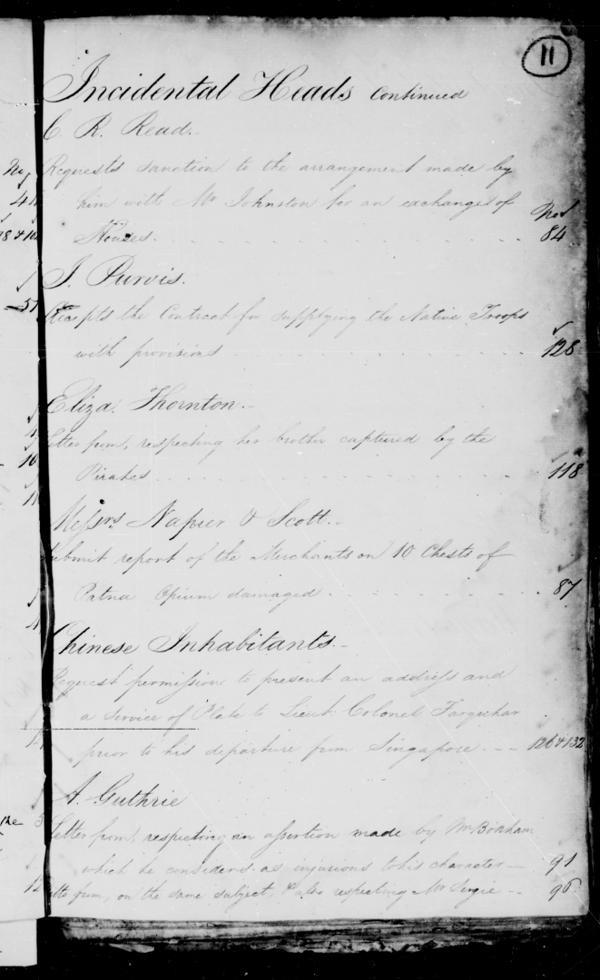 11
Incidental Heads Continued
C. R. Read.
Requests sanction to the arrangement made by
him with Mr Johnston for an exchange of Nos
Houses. 84
J. Purvis.
Accepts the Contract for supplying the Native Troops
with provisions 128
Eliza Thornton.
Letter from, respecting her brother captured by the
Pirates 118
Messrs Napier & Scott.
Submit report of the Merchants on 10 Chests of
Patna Opium damaged 87
Chinese Inhabitants.
Request permission to present an address and
a Service of Plate to Lieut. Colonel Farquhar
prior to his departure from Singapore 126 & 132
A. Guthrie
Letter from, respecting an assertion made by Mr Bonham
which he considers as injurious to his character 91
Letter from, on the same subject, & also respecting Mr 96